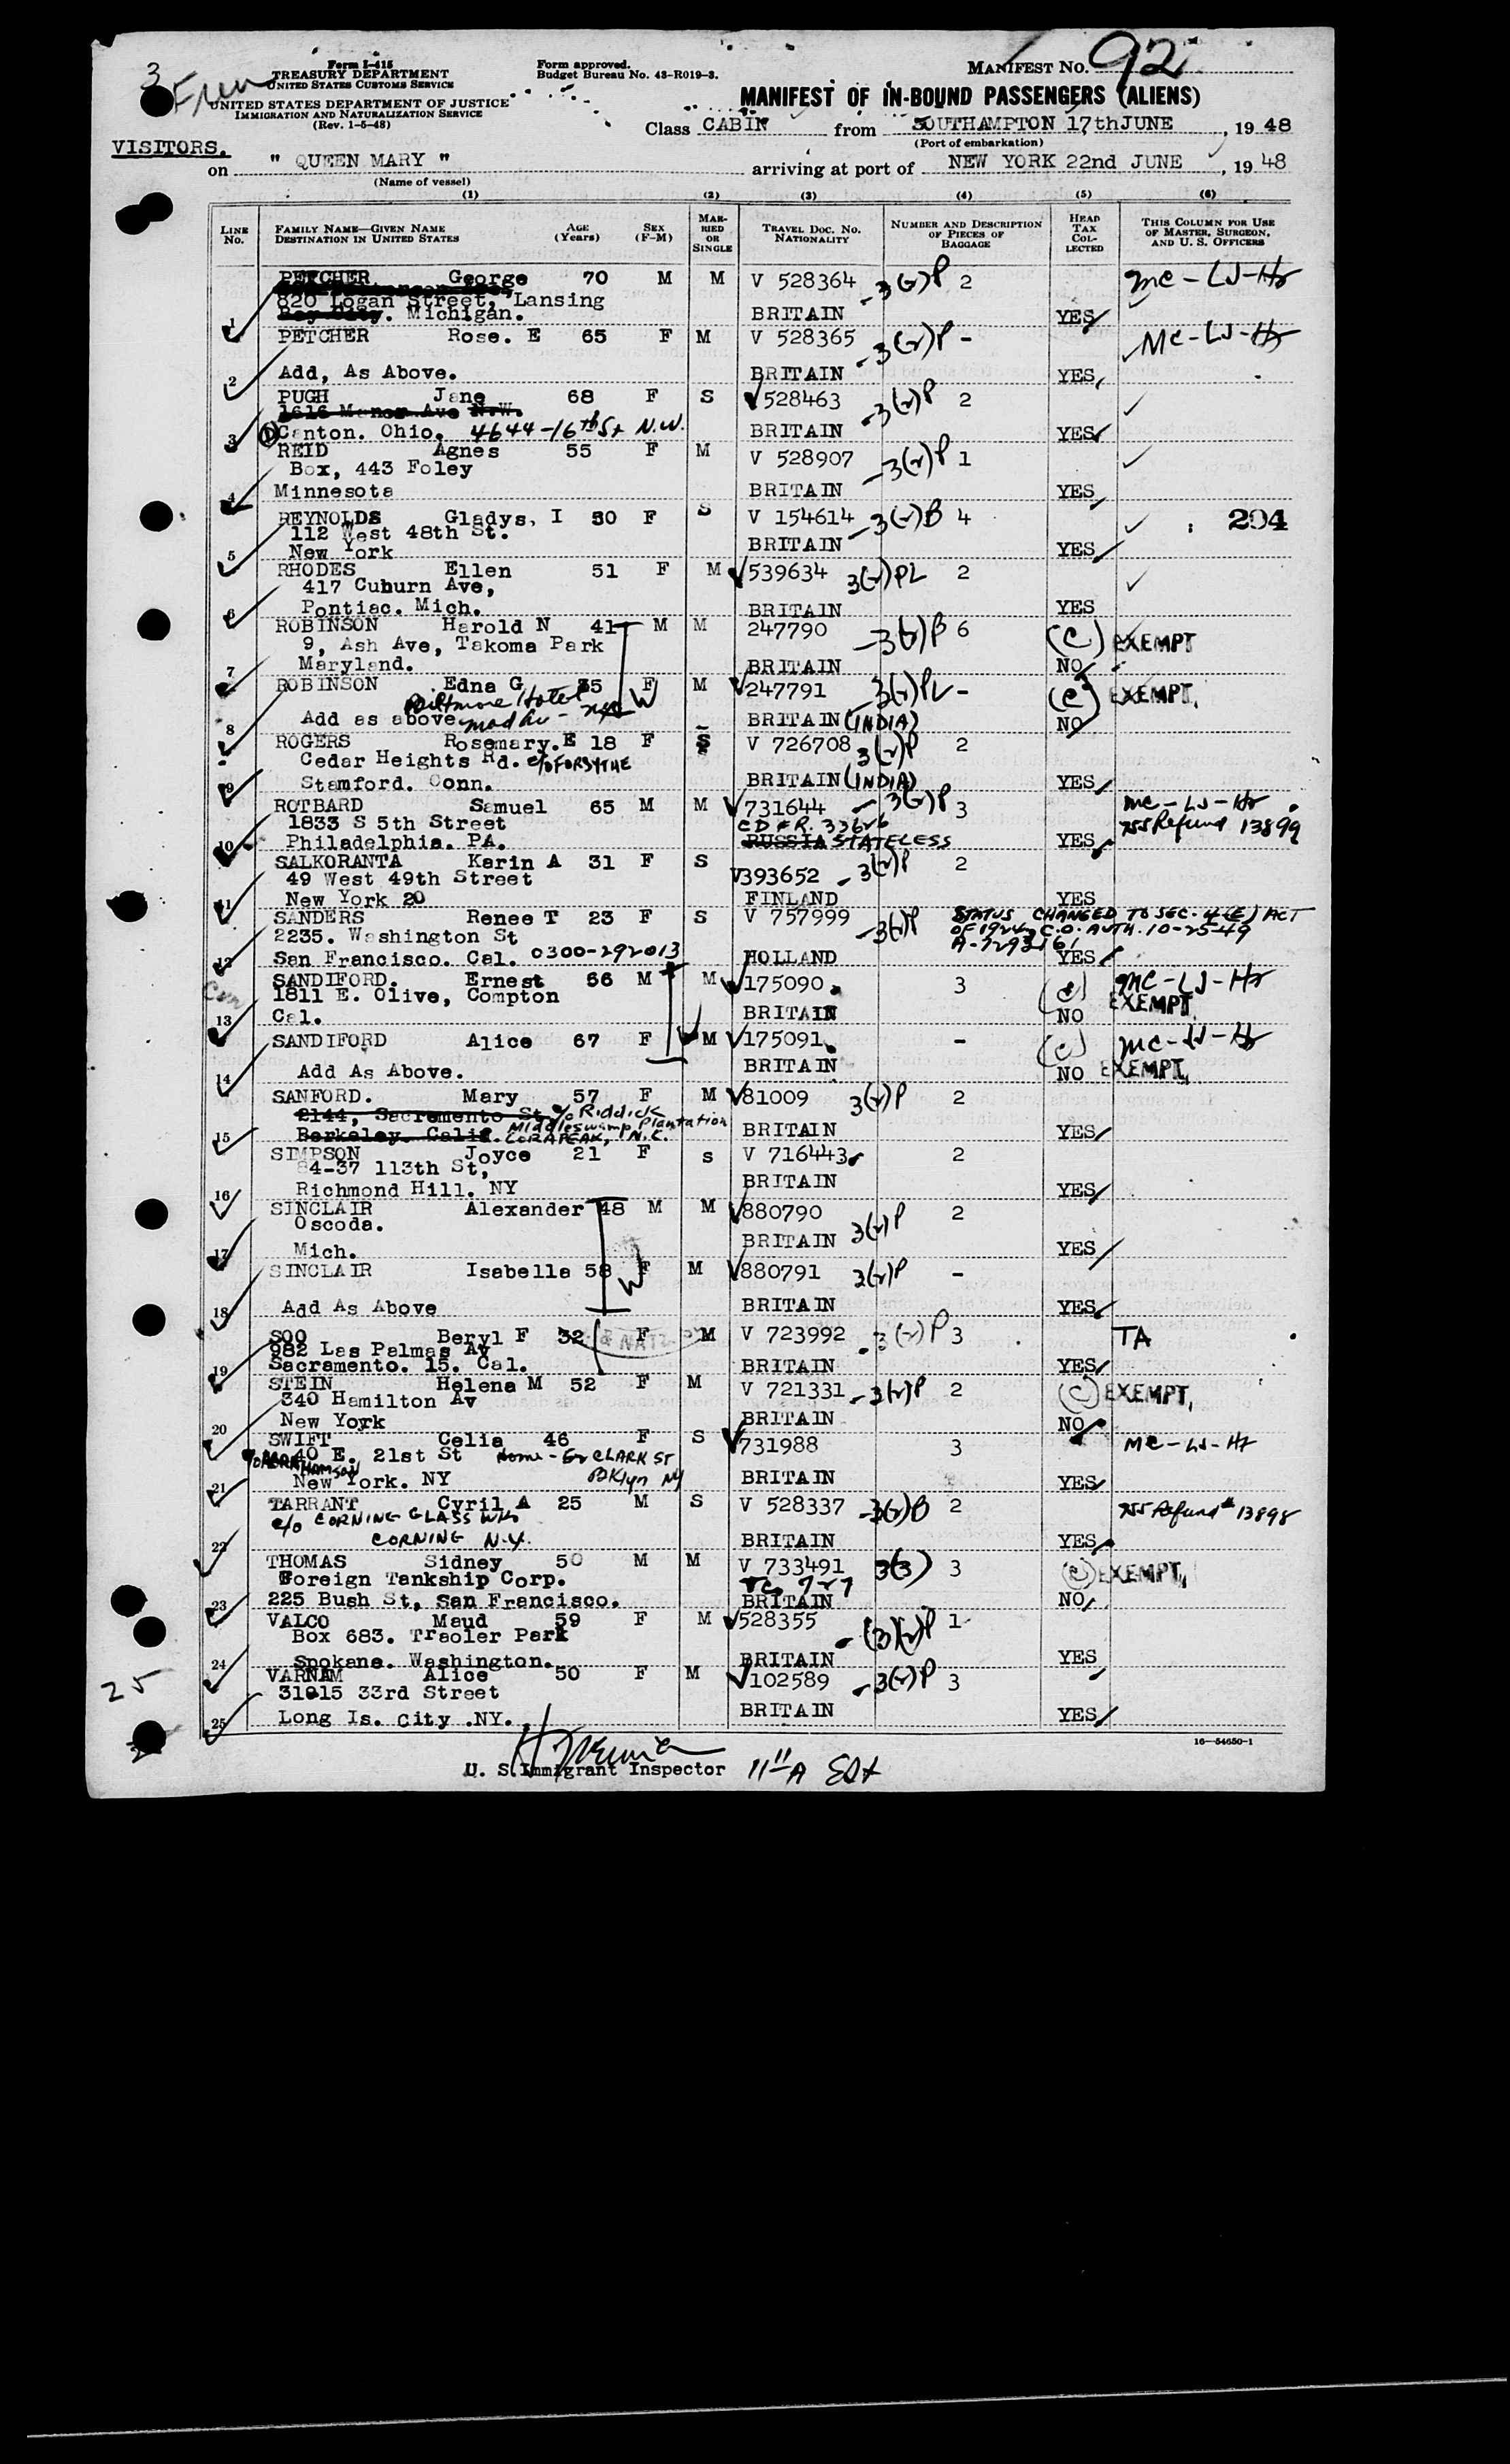 3
Form I-415
TREASURY DEPARTMENT
UNITED STATES CUSTOMS SERVICE
UNITED STATES DEPARTMENT OF JUSTICE
IMMIGRATION AND NATURALIZATION SERVICE
(Rev. 1-5-48)
Form approved.
Budget Bureau No. 43-R019-3.
MANIFEST NO. 92
MANIFEST OF IN-BOUND PASSENGERS (ALIENS)
Class CABIN from SOUTHAMPTON 17thJUNE, 19 48
(Port of embarkation)
VISITORS.
on " QUEEN MARY " arriving at port of NEW YORK 22nd JUNE, 19 48
(Name of vessel)
(1) (2) (3) (4) (5) (6)
LINE No. FAMILY NAME—GIVEN NAME DESTINATION IN UNITED STATES AGE (Years) SEX (F-M) MARRIED OR SINGLE TRAVEL DOC. NO. NATIONALITY NUMBER AND DESCRIPTION OF PIECES OF BAGGAGE HEAD TAX COLLECTED THIS COLUMN FOR USE OF MASTER, SURGEON, AND U. S. OFFICERS
PETCHER George 70 M M V 528364 -3(2)P 2 MC-LJ-Hr
820 Logan Street, Lansing
1 Bay City. Michigan. BRITAIN YES
PETCHER Rose. E 65 F M V 528365 -3(2)P - MC-LJ-Hr
2 Add, As Above. BRITAIN YES
PUGH Jane 68 F S 528463 -3(2)P 2
1616 Manor Ave N.W.
3 Canton. Ohio. 4644-16th St N.W. BRITAIN YES
REID Agnes 55 F M V 528907 -3(2)P 1
Box, 443 Foley
4 Minnesota BRITAIN YES
REYNOLDS Gladys, I 30 F S V 154614 -3(2)B 4 294
112 West 48th St.
5 New York BRITAIN YES
RHODES Ellen 51 F M 539634 3(2)PL 2
417 Cuburn Ave,
6 Pontiac. Mich. BRITAIN YES
ROBINSON Harold N 41 M M 247790 -3(2)B 6 (C) EXEMPT
9, Ash Ave, Takoma Park
7 Maryland. BRITAIN NO
ROBINSON Edna G 35 F W M 247791 -3(2)PL - (C) EXEMPT
Biltmore Hotel
8 Add as above. mad Av - nyc BRITAIN (INDIA) NO
ROGERS Rosemary.E 18 F S V 726708 3(2)P 2
Cedar Heights Rd. c/o FORSYTHE
9 Stamford. Conn. BRITAIN (INDIA) YES
ROTBARD Samuel 65 M M 731644 - 3(2)P 3 MC-LJ-Hr
1833 S 5th Street Refund 13899
10 Philadelphia. PA. RUSSIA STATELESS YES
SALKORANTA Karin A 31 F S V393652 -3(2)P 2
49 West 49th Street
11 New York 20 FINLAND YES
SANDERS Renee T 23 F S V 757999 -3(2)P STATUS CHANGED TO SEC. 4(E) ACT
2235. Washington St OF 1924, C.O. AUTH. 10-25-49
12 San Francisco. Cal. 0300-292013 HOLLAND A-7293161 YES
SANDIFORD. Ernest 66 M M 175090 3 (C) MC-LJ-Hr
1811 E. Olive, Compton EXEMPT
13 Cal. BRITAIN NO
SANDIFORD Alice 67 F M 175091 - (C) MC-LJ-Hr
14 Add As Above. BRITAIN NO EXEMPT
SANFORD. Mary 57 F M 81009 3(2)P 2
2144, Sacramento St, c/o Riddick Middleswamp Plantation
15 Berkeley. Calif. CORAPEAK, N.C. BRITAIN YES
SIMPSON Joyce 21 F s V 716443 2
84-37 113th St,
16 Richmond Hill. NY BRITAIN YES
SINCLAIR Alexander 48 M M 880790 3(2)P 2
Oscoda.
17 Mich. BRITAIN YES
SINCLAIR Isabella 58 F W M 880791 3(2)P -
18 Add As Above BRITAIN YES
SOO Beryl F 32 F M V 723992 3(2)P 3 TA
982 Las Palmas Av
19 Sacramento. 15. Cal. BRITAIN YES
STEIN Helena M 52 F M V 721331 -3(2)P 2 (C) EXEMPT
340 Hamilton Av
20 New York BRITAIN NO
SWIFT Celia 46 F S 731988 3 MC-LJ-Hr
40 E. 21st St Home - CLARK ST
21 New York. NY BKlyn NY BRITAIN YES
TARRANT Cyril A 25 M S V 528337 -3(2)B 2 Refund # 13898
c/o CORNING GLASS WKS
22 CORNING N.Y. BRITAIN YES
THOMAS Sidney 50 M M V 733491 3(3) 3 (C) EXEMPT
Foreign Tankship Corp.
23 225 Bush St, San Francisco. BRITAIN NO
VALCO Maud 59 F M 528355 - (3)(2)P 1
Box 683. Traoler Park
24 Spokane. Washington. BRITAIN YES
VARNAM Alice 50 F M 102589 -3(2)P 3
31915 33rd Street
25 Long Is. City .NY. BRITAIN YES
25
16—54650-1
U. S. Immigrant Inspector